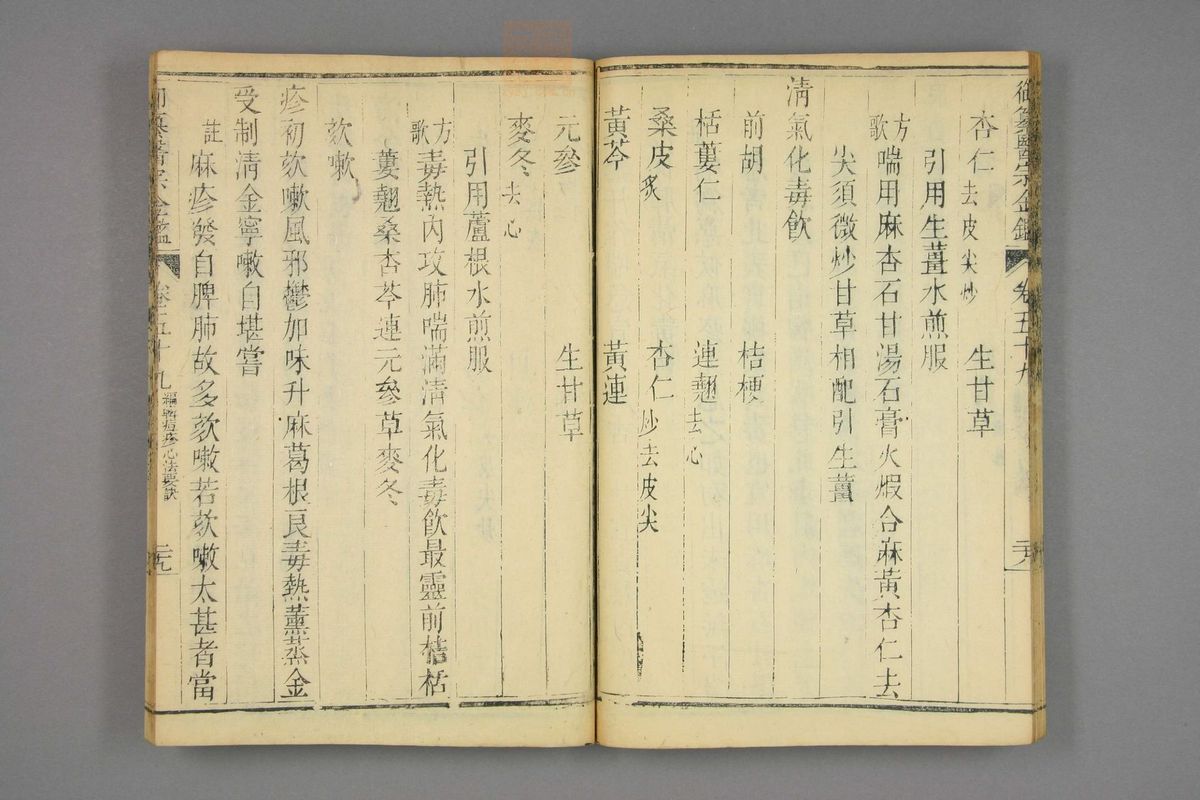 御纂醫宗金鑑 卷五十九 二十八
杏仁去皮尖炒 生甘草
引用生薑水煎服
方歌 喘用麻杏石甘湯石膏火煅合麻黃杏仁去
尖須微炒甘草相配引生薑
清氣化毒飲
前胡 桔梗
栝蔞仁 連翹去心
桑皮炙 杏仁炒去皮尖
黃芩 黃連
元參 生甘草
麥冬去心
引用蘆根水煎服
方歌 毒熱內攻肺喘滿清氣化毒飲最靈前桔栝
蔞翹桑杏芩連元參草麥冬
欬嗽
疹初欬嗽風邪鬱加味升麻葛根良毒熱薰蒸金
受制清金寧嗽自堪嘗
註 麻疹發自脾肺故多欬嗽若欬嗽太甚者當
御纂醫宗金鑑 卷五十九 編輯痘疹心法要訣 二十九